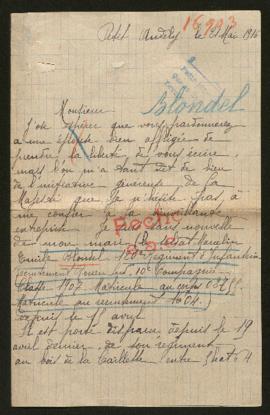 16993
Petit Andely le 21 Mai 1916
Blondel
Monsieur
J'ose espérer que vous pardonnerez
à une épouse bien affligée de
prendre la liberté de vous écrire,
mais l'on m'a tant dit de bien
de l'initiative généreuse de sa
Majesté que je n'hésite pas, à
me confier à sa bienveillante
entreprise. Je suis sans nouvelle
de mon mari le soldat Marcelin
Emile Blondel Régiment d'Infanterie
10e Compagnie
Classe 1907. Matricule au corps
Matricule au recrutement 1604.
depuis le 15 avril
Il est porté disparu depuis le 19
avril dernier, de son régiment
au bois de la Caillette entre